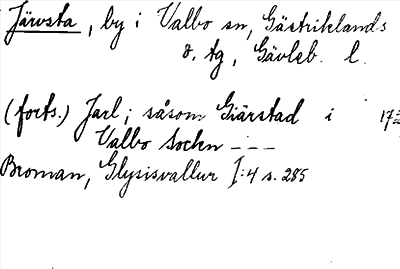 Järvsta, by i Valbo sn, Gästriklands
ö. tg, Gävleb. l.
(forts.) Jarl; såsom Giärstad i
Valbo Socken - - -
Broman, Glysisvallur I:4 s. 285